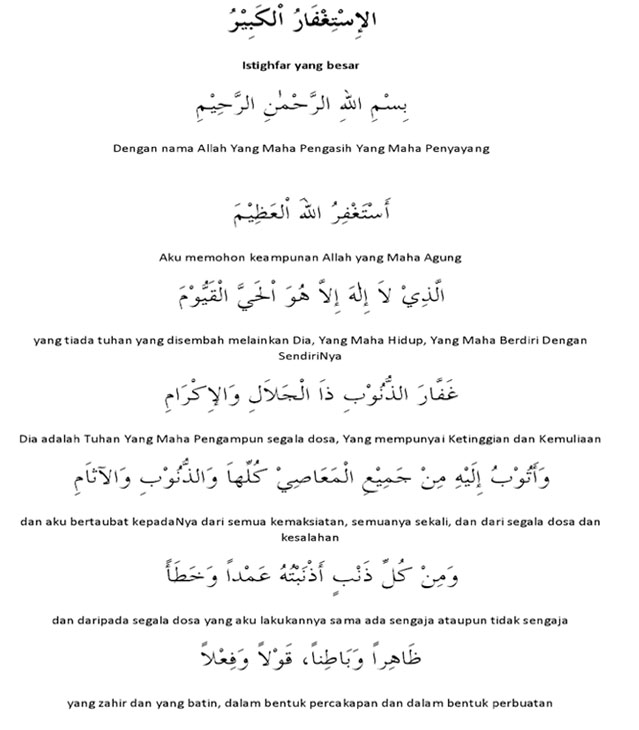 الإِسْتِغْفَارُ الْكَبِيْرُ
Istighfar yang besar
بِسْمِ اللهِ الرَّحْمٰنِ الرَّحِيْمِ
Dengan nama Allah Yang Maha Pengasih Yang Maha Penyayang
أَسْتَغْفِرُ اللهَ الْعَظِيْمَ
Aku memohon keampunan Allah yang Maha Agung
الَّذِيْ لاَ إِلٰهَ إِلاَّ هُوَ الْحَيَّ الْقَيُّوْمَ
yang tiada tuhan yang disembah melainkan Dia, Yang Maha Hidup, Yang Maha Berdiri Dengan
SendiriNya
غَفَّارَ الذُّنُوْبِ ذَا الْجَلاَلِ وَالإِكْرَامِ
Dia adalah Tuhan Yang Maha Pengampun segala dosa, Yang mempunyai Ketinggian dan Kemuliaan
وَأَتُوْبُ إِلَيْهِ مِنْ جَمِيْعِ الْمَعَاصِيْ كُلِّهاَ وَالذُّنُوْبِ وَالآثاَمِ
dan aku bertaubat kepadaNya dari semua kemaksiatan, semuanya sekali, dan dari segala dosa dan
kesalahan
وَمِنْ كُلِّ ذَنْبٍ أَذْنَبْتُهُ عَمْداً وَخَطَأً
dan daripada segala dosa yang aku lakukannya sama ada sengaja ataupun tidak sengaja
ظَاهِراً وَبَاطِناً، قَوْلاً وَفِعْلاً
yang zahir dan yang batin, dalam bentuk percakapan dan dalam bentuk perbuatan